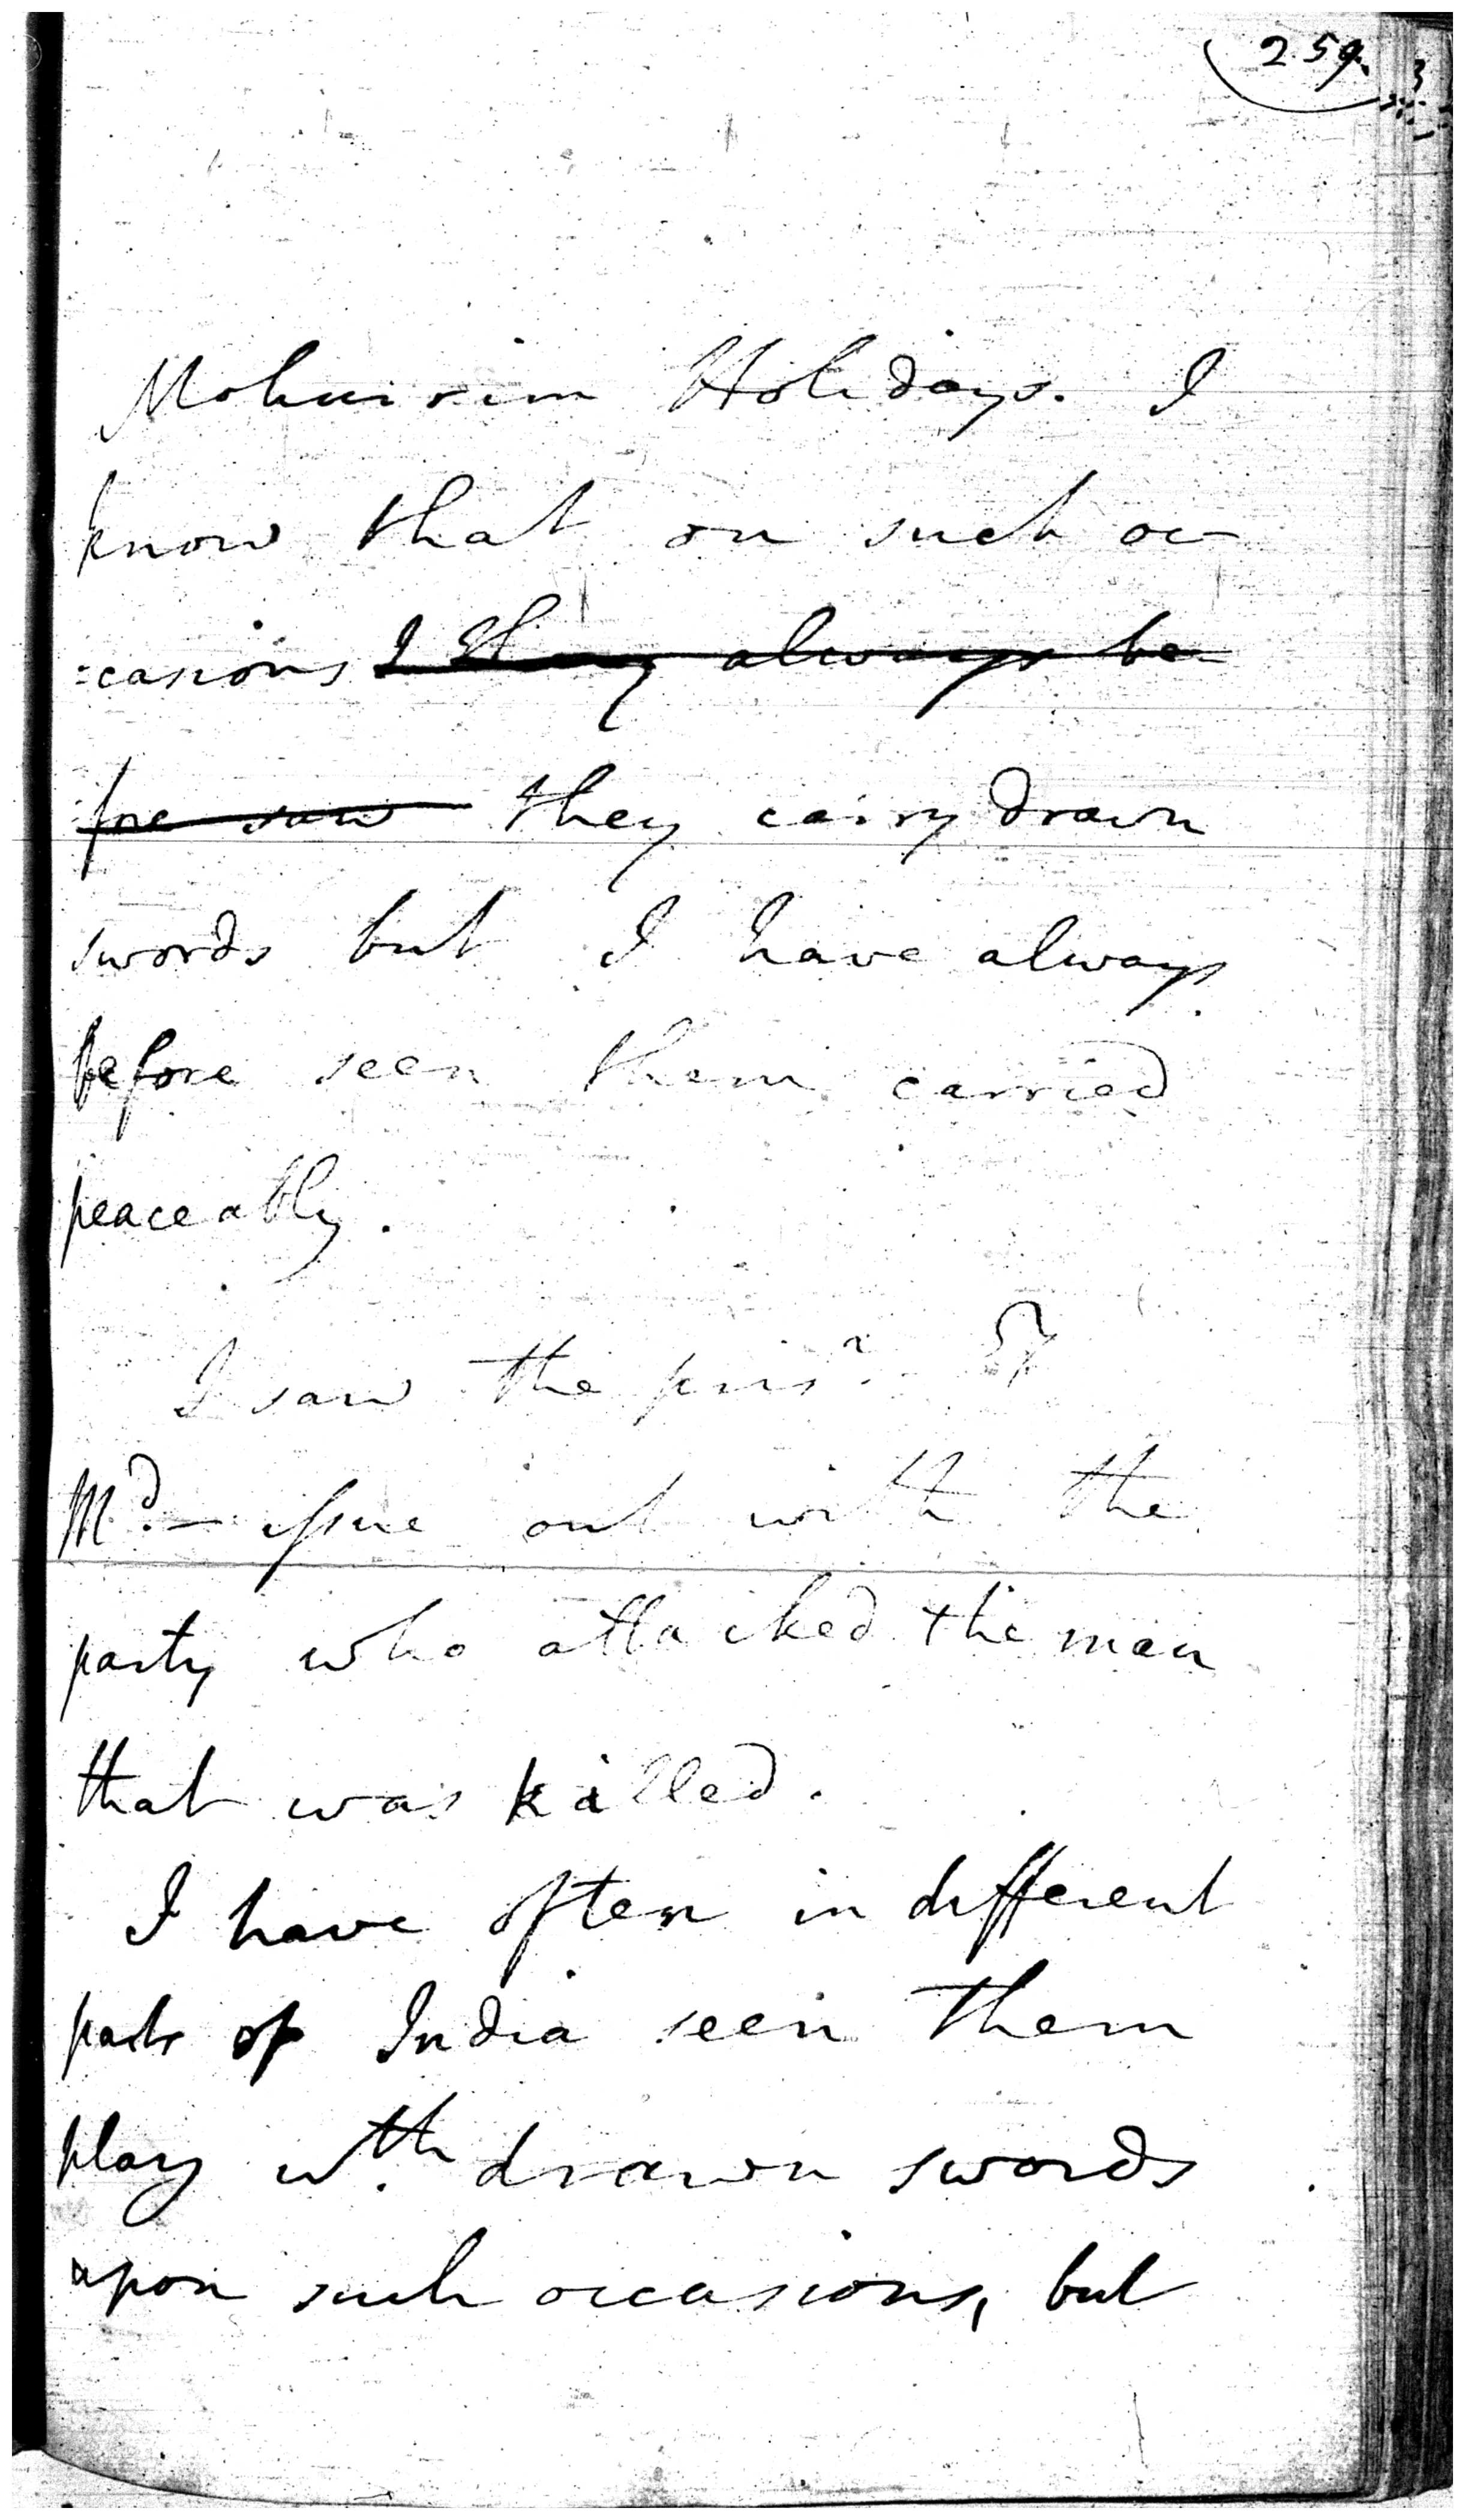 259.
Mohurim Holidays. I
know that on such oc-
=casions I they always be-
fore saw they carry drawn
swords but I have always
before seen them carried
peaceably.
I saw the pris.r
M.d — issue out with the
party who attacked the man
that was killed.
I have often in different
parts of India seen them
play w.th drawn swords
upon such occasions, but